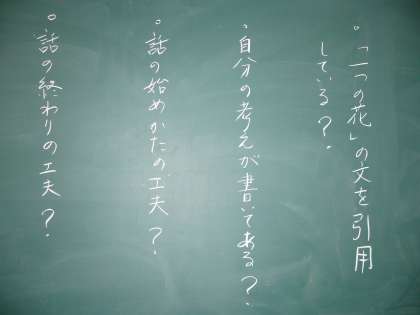 。「一つの花」の文を引用
している？。
・自分の考えが書いてある？。
。話の始めかたの工夫？
。話の終わりの工夫？